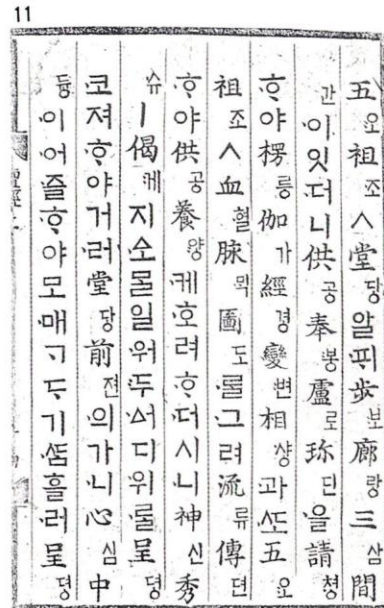 11
五오祖조ㅅ堂당알ᄑᆡ步보廊랑三삼間
간이잇더니供공奉봉盧로珎딘을請쳥
ᄒᆞ야楞릉伽가經경變변相샹과ᄯᅩ五오
祖조ㅅ血혈脉ᄆᆡᆨ圖도ᄅᆞᆯ그려流류傳뎐
ᄒᆞ야供공養양케호려ᄒᆞ더시니神신秀
슈ㅣ偈게지소ᄆᆞᆯ일워두ᅀᅥ디위ᄅᆞᆯ呈뎡
코져ᄒᆞ야거러堂당前젼의가니心심中
듕이어즐ᄒᆞ야모매ᄀᆞᄃᆞ기ᄯᆞᆷ흘러呈뎡